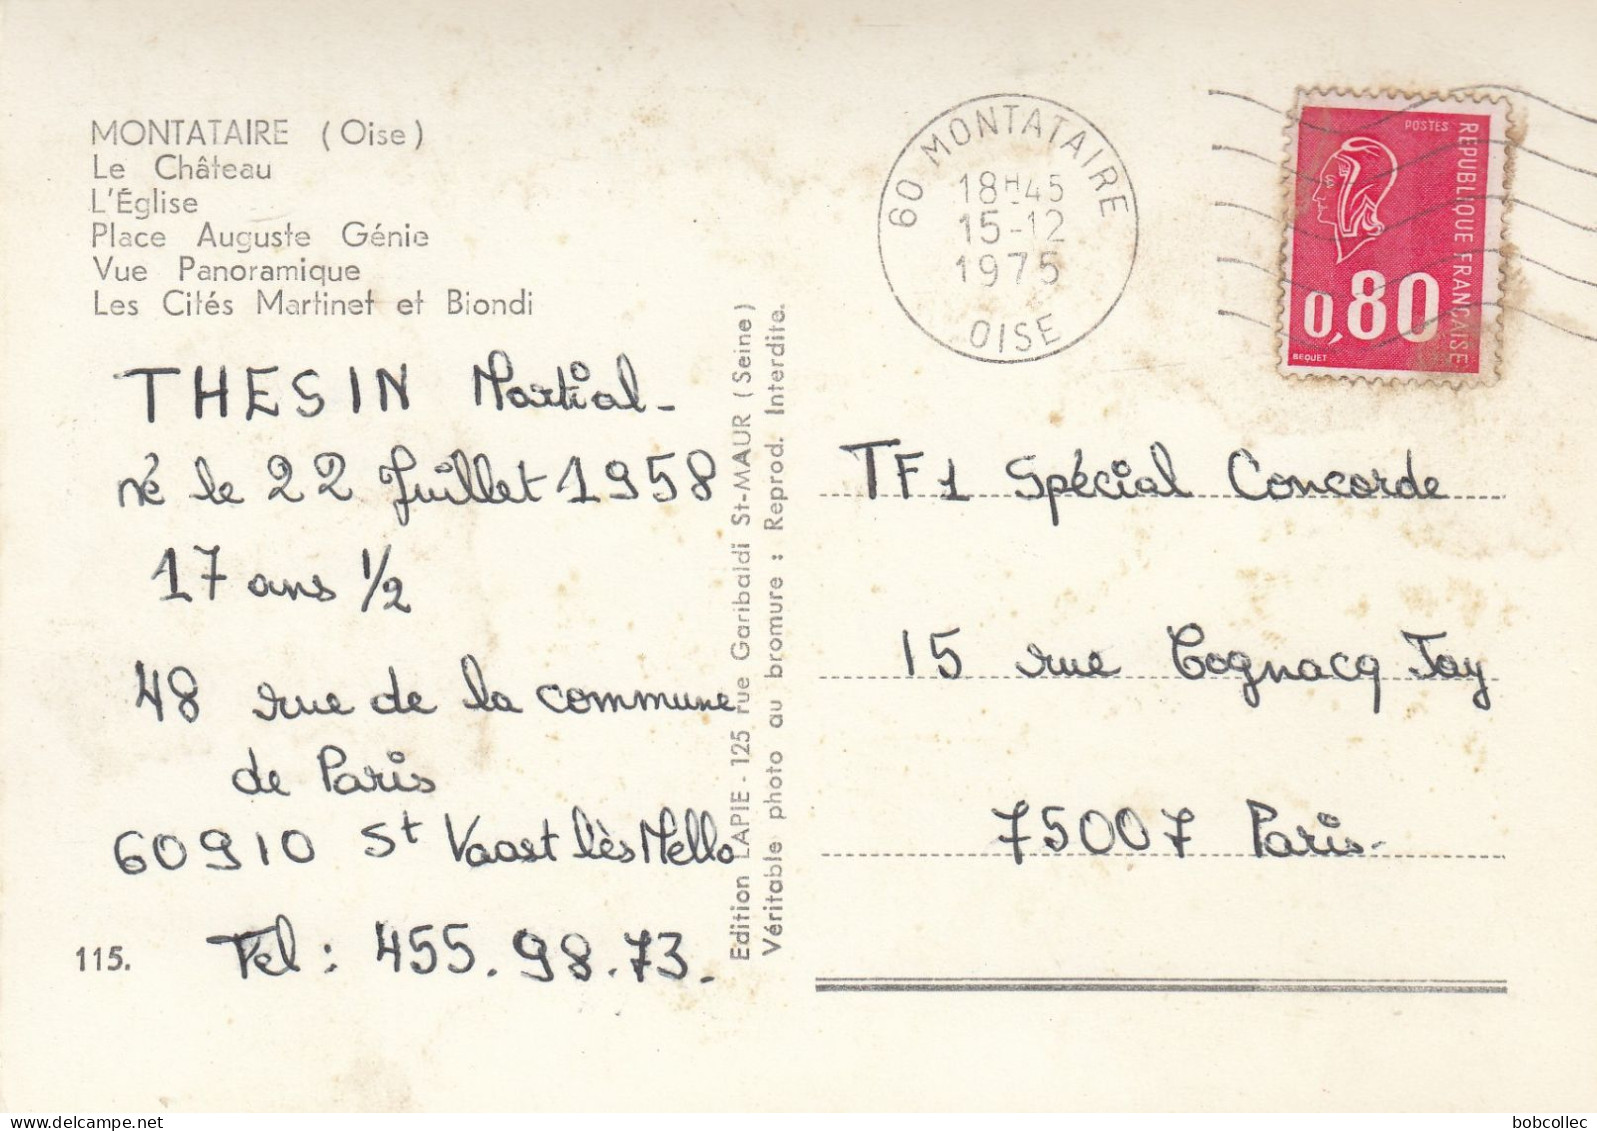 MONTATAIRE (Oise)
Le Château
L'Église
Place Auguste Génie
Vue Panoramique
Les Cités Martinet et Biondi
THESIN Martial -
né le 22 Juillet 1958
17 ans 1/2
48 rue de la commune
de Paris
60910 St Vaast lès Mello
115.
Tel : 455.98.73.
Edition LAPIE - 125 rue Garibaldi St-MAUR (Seine)
Véritable photo au bromure : Reprod. Interdite.
60 MONTATAIRE
18H45
15-12
1975
OISE
POSTES
REPUBLIQUE FRANÇAISE
0,80
BEQUET
TF1 Spécial Concorde
15 rue Cognacq Jay
75007 Paris.
bobcollec